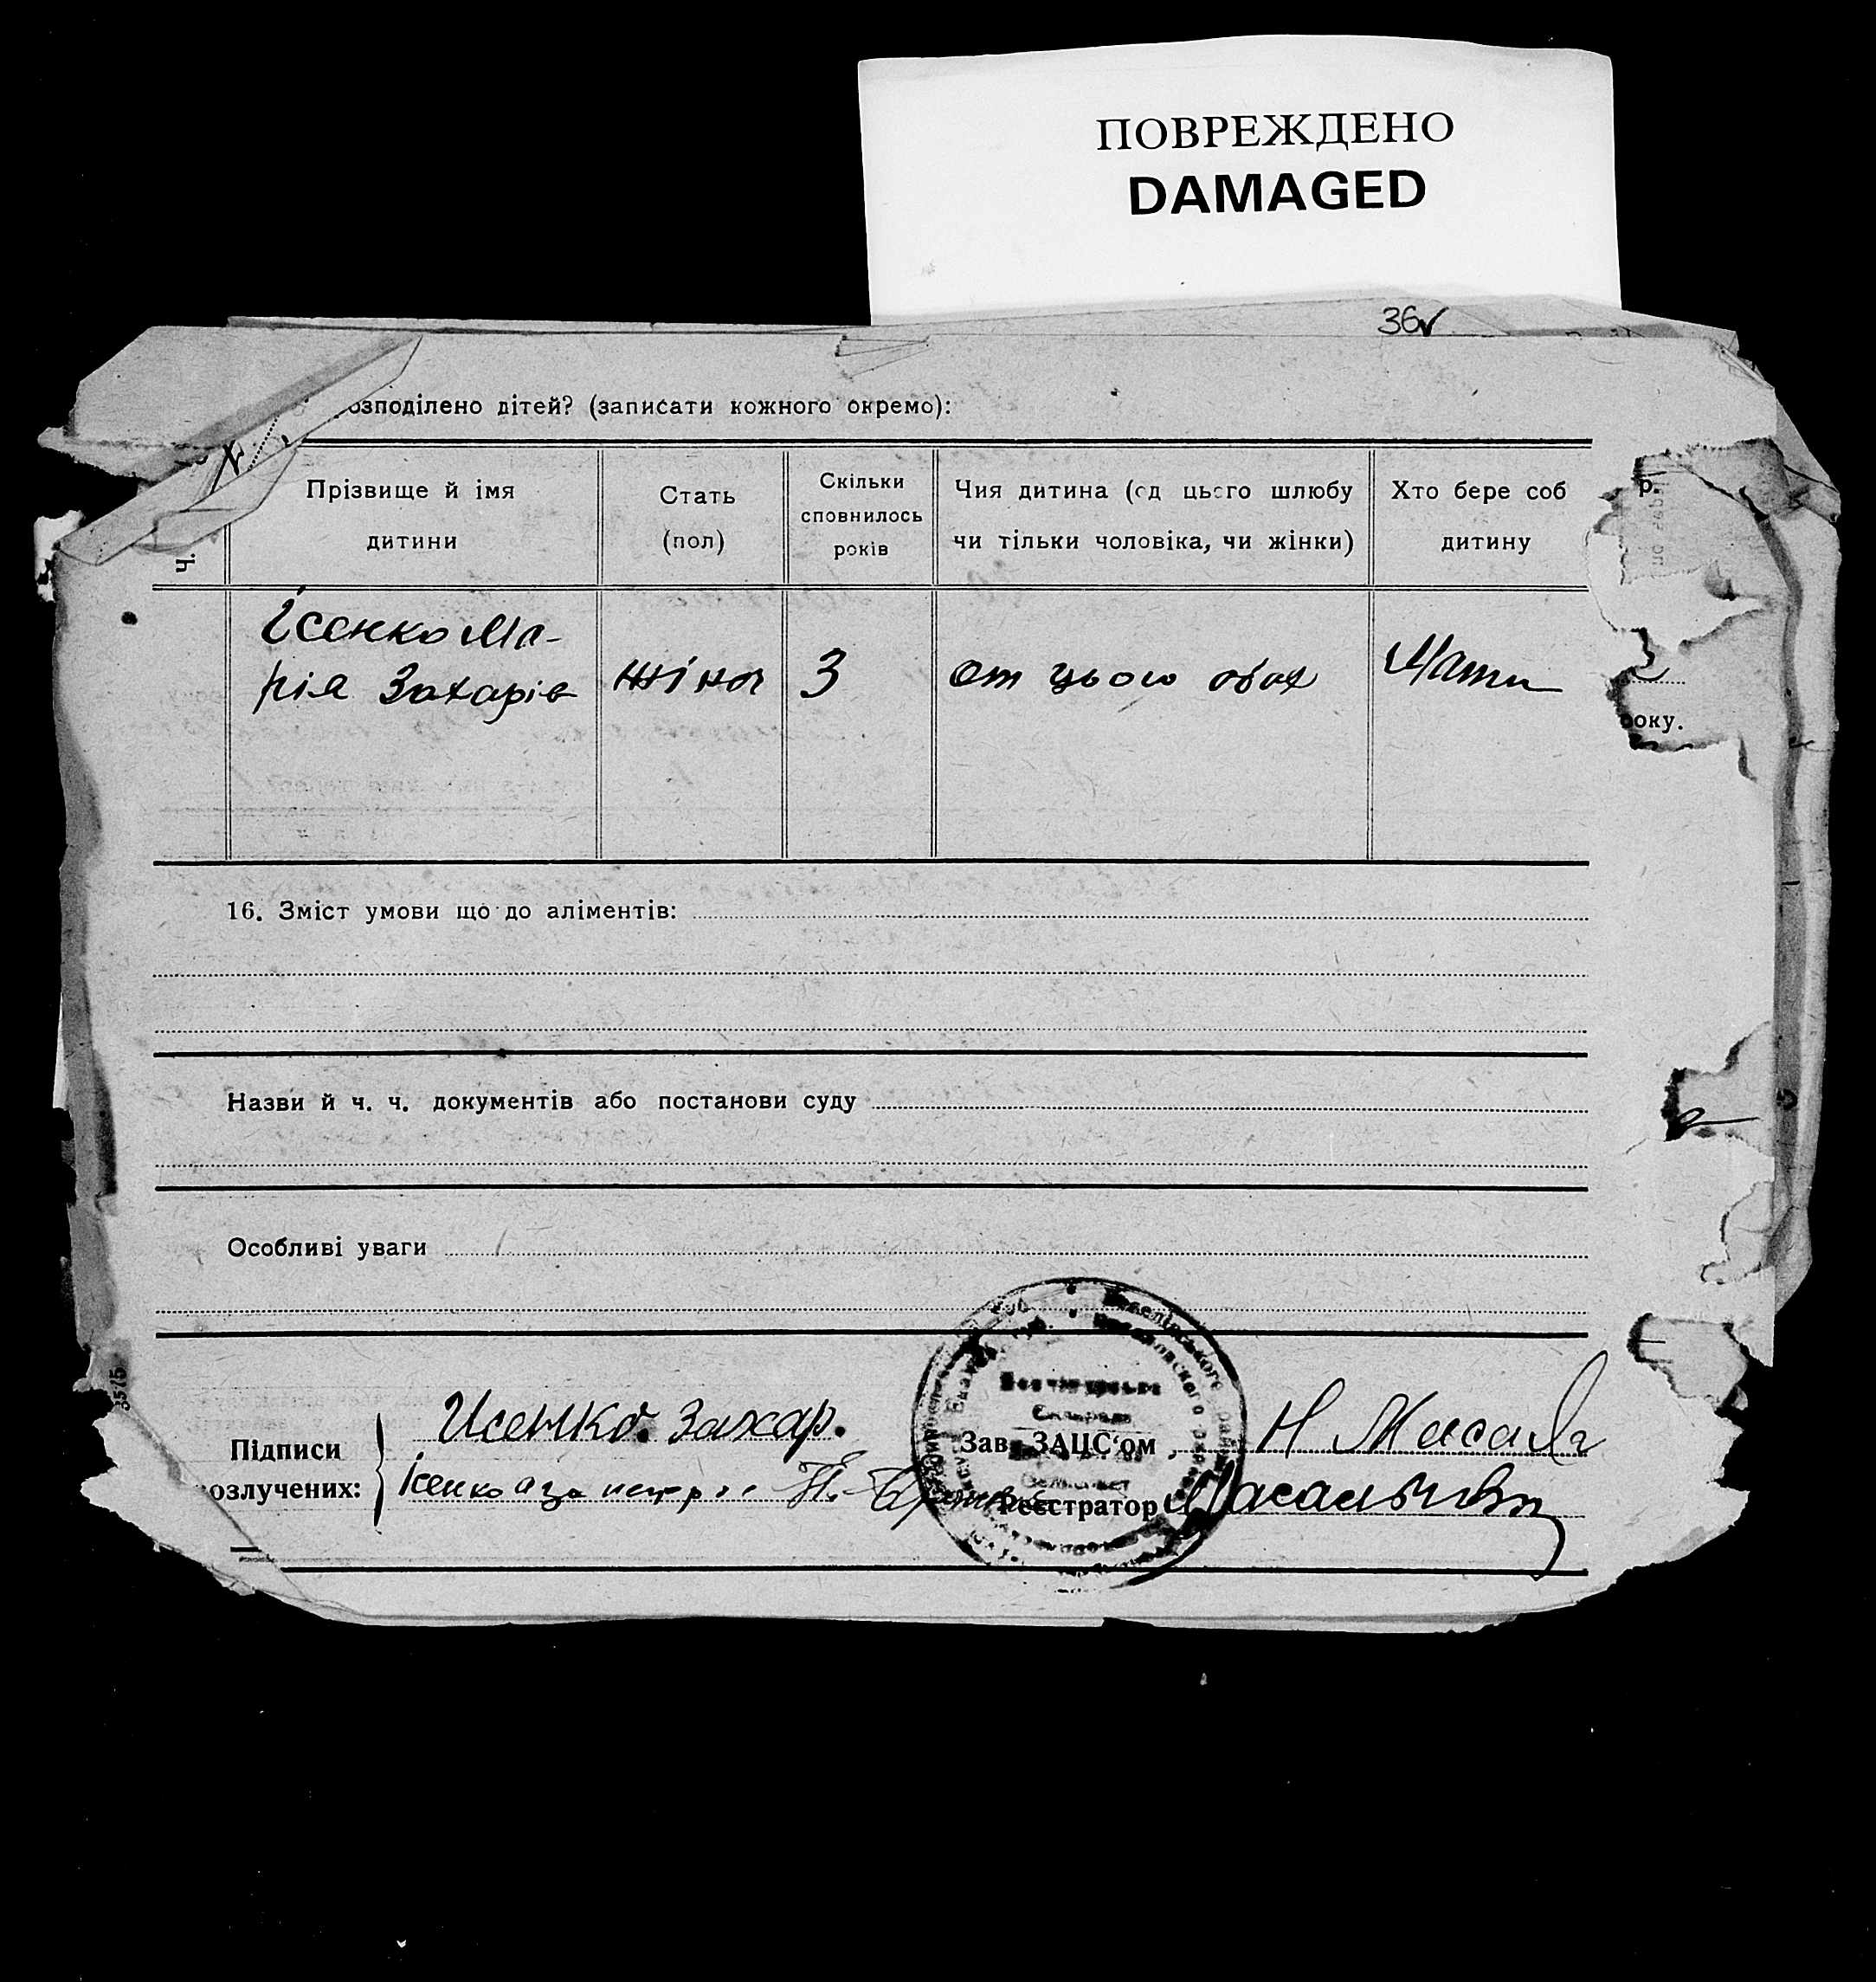 ПОВРЕЖДЕНО
DAMAGED
36
озподілено дітей? (записати кожного окремо):
Прізвище й імя дитини
Стать (пол)
Скільки сповнилось років
Чия дитина (од цього шлюбу чи тільки чоловіка, чи жінки)
Хто бере соб дитину
р.
Ч.
Ісенко Ма-
рія Захарів
жіноч
3
от цього обох
Мати
оку.
16. Зміст умови що до аліментів:
Назви й ч. ч. документів або постанови суду
Особливі уваги
3515
Підписи
озлучених:
Исенко. Захар.
Ісенко а за
Зав. ЗАЦС'ом
Реєстратор